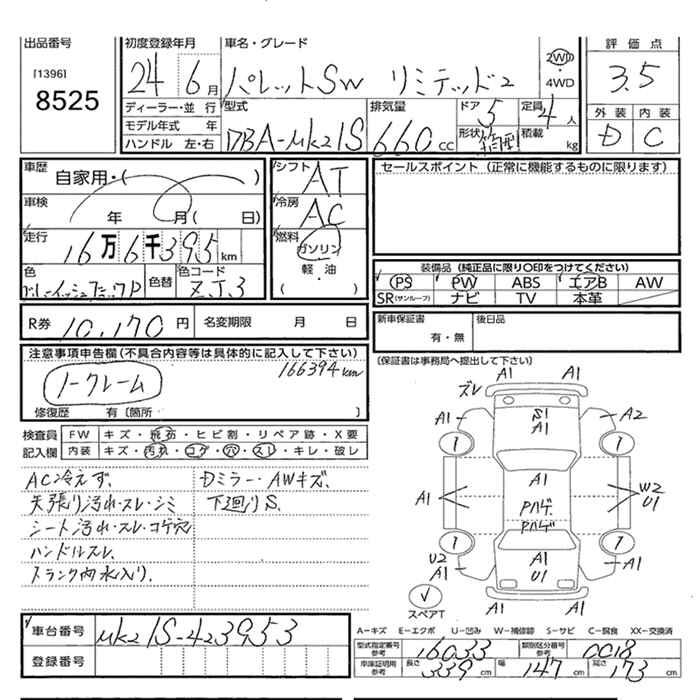 出品番号
[1396]
8525
初度登録年月
24 6月
車名・グレード
パレットSW リミテッド2
2WD
4WD
評価点
3.5
外装 内装
D C
ディーラー・並行
モデル年式 年
ハンドル 左・右
型式
DBA-MK21S
排気量
660cc
ドア 5
形状 箱型
定員 4人
積載 kg
車歴
自家用・( )
車検
年 月( 日)
走行
16万6千395km
色
色替
色コード
ZJ3
シフト AT
冷房 AC
燃料
ガソリン
軽・油
( )
セールスポイント (正常に機能するものに限ります)
装備品 (純正品に限り○印をつけてください)
PS PW ABS エアB AW
SR(サンルーフ) ナビ TV 本革
R券 10,170円 名変期限 月 日
新車保証書
有・無
後日品
(保証書は事務局へ提出して下さい)
注意事項申告欄(不具合内容等は具体的に記入して下さい)
166394km
ノークレーム
修復歴 有〔箇所 〕
検査員 FW キズ・飛石・ヒビ割・リペア跡・X要
記入欄 内装 キズ・汚れ・コゲ・穴・スレ・キレ・破レ
AC冷えず、 Dミラー・AWキズ、
天張り汚れ・スレ・シミ 下廻りS、
シート汚れ・スレ・コゲ穴
ハンドルスレ、
トランク内水入り、
A1 A1
ズレ
A1 S1 A2
A1
A1
A1 W2
Pハゲ U1
Pハゲ
U2 A1 A1
A1 U1
A1
スペアT
車台番号 MK21S-423953
登録番号
A－キズ E－エクボ U－凹み W－補修跡 S－サビ C－腐食 XX－交換済
型式指定番号 参考 16033 類別区分番号 参考 0018
車庫証明用 参考 長さ 339cm 幅 147cm 高さ 173cm